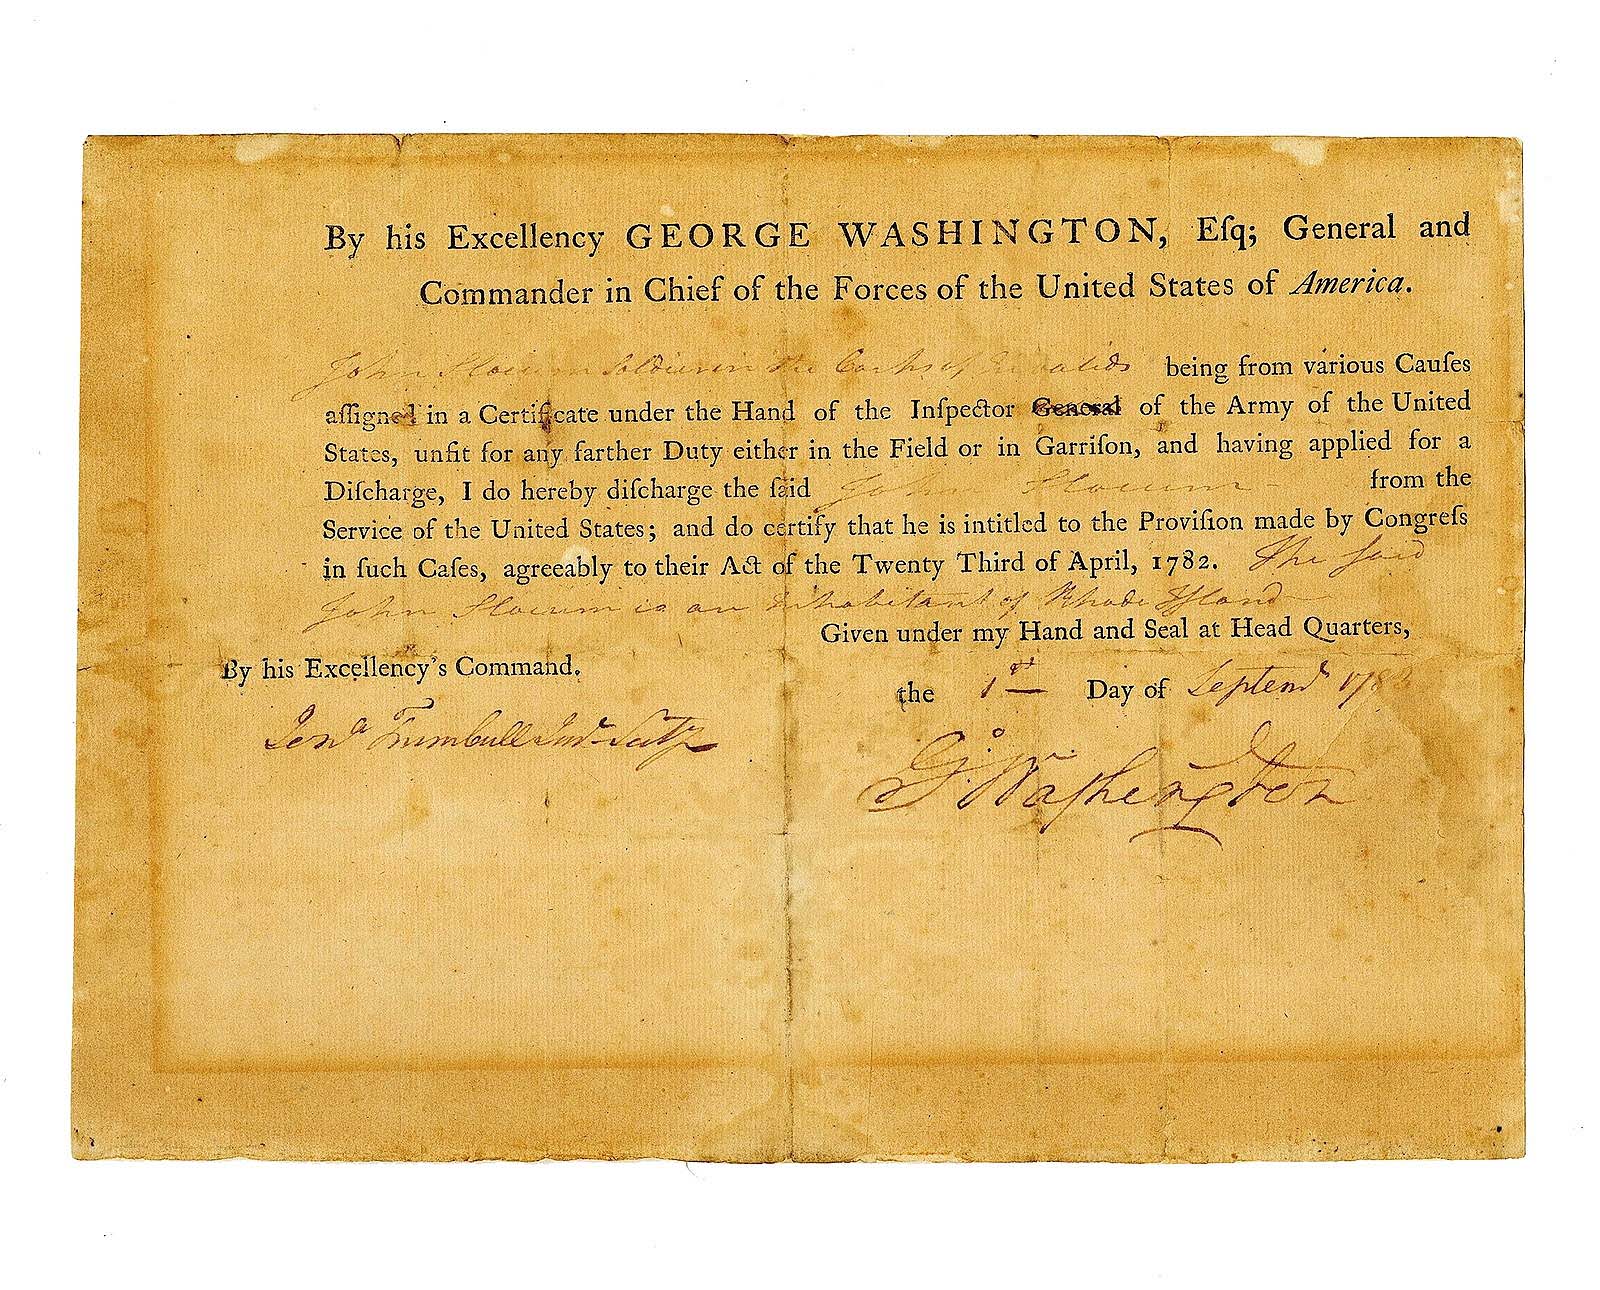 By his Excellency GEORGE WASHINGTON, Eſq; General and
Commander in Chief of the Forces of the United States of America.
John Slocum Soldier in the Corps of Invalids being from various Cauſes
aſſigned in a Certificate under the Hand of the Inſpector General of the Army of the United
States, unfit for any farther Duty either in the Field or in Garriſon, and having applied for a
Diſcharge, I do hereby diſcharge the ſaid John Slocum from the
Service of the United States; and do certify that he is intitled to the Proviſion made by Congreſs
in ſuch Caſes, agreeably to their Act of the Twenty Third of April, 1782. The ſaid
John Slocum is an inhabitant of Rhode Iſland
Given under my Hand and Seal at Head Quarters,
By his Excellency's Command.
the 1st Day of Septemr 178
Jona Trumbull Junr Secty
Go Waſhington